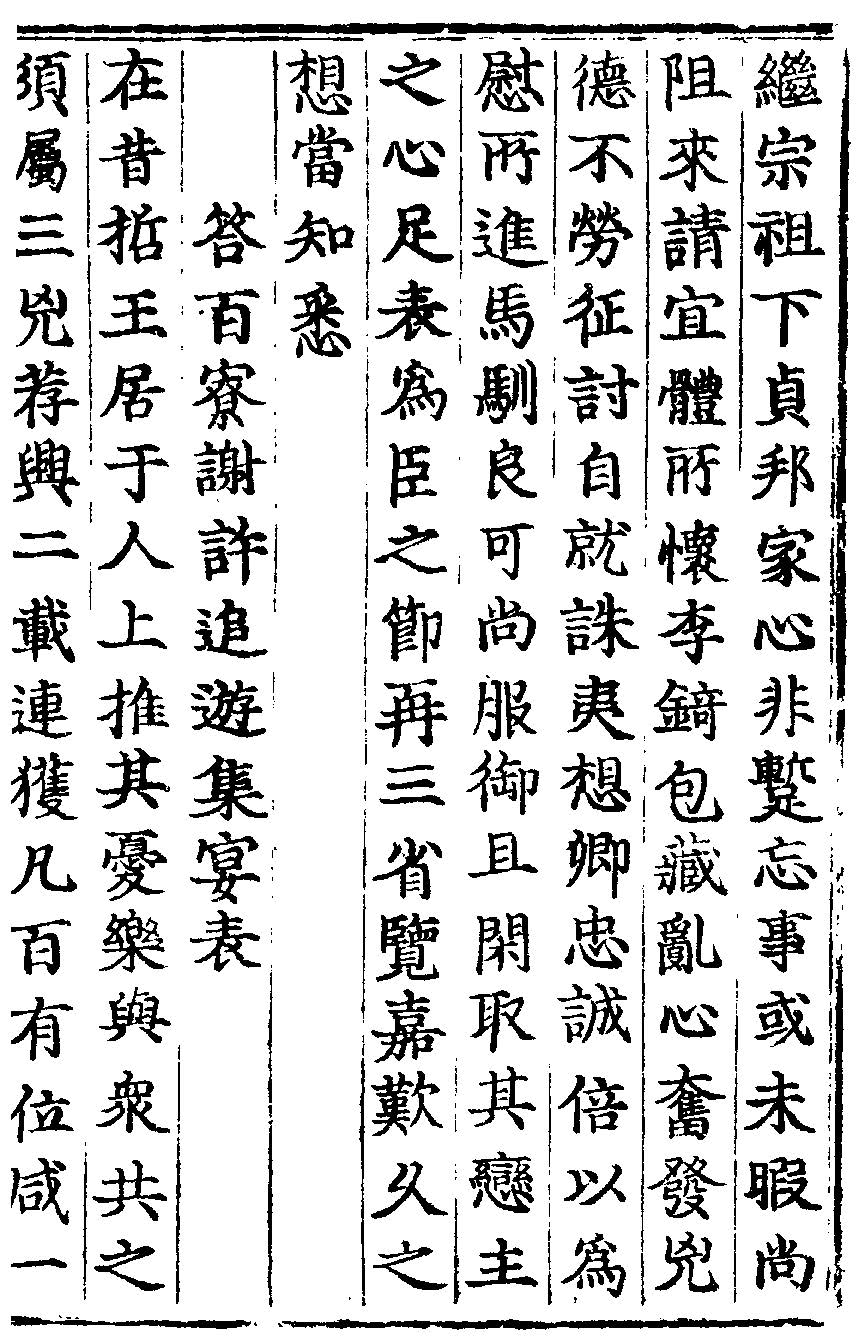 繼宗祖下貞邦家心非蹔忘事或未暇尚
阻來請宜體所懷李錡包藏亂心奮發兇
德不勞征討自就誅夷想卿忠誠倍以爲
慰所進馬馴良可尚服御且閑取其戀主
之心足表爲臣之節再三省覽嘉歎久之
想當知悉
答百寮謝許追遊集宴表
在昔哲王居于人上推其憂樂與衆共之
須屬三兇荐興二載連獲凡百有位咸一